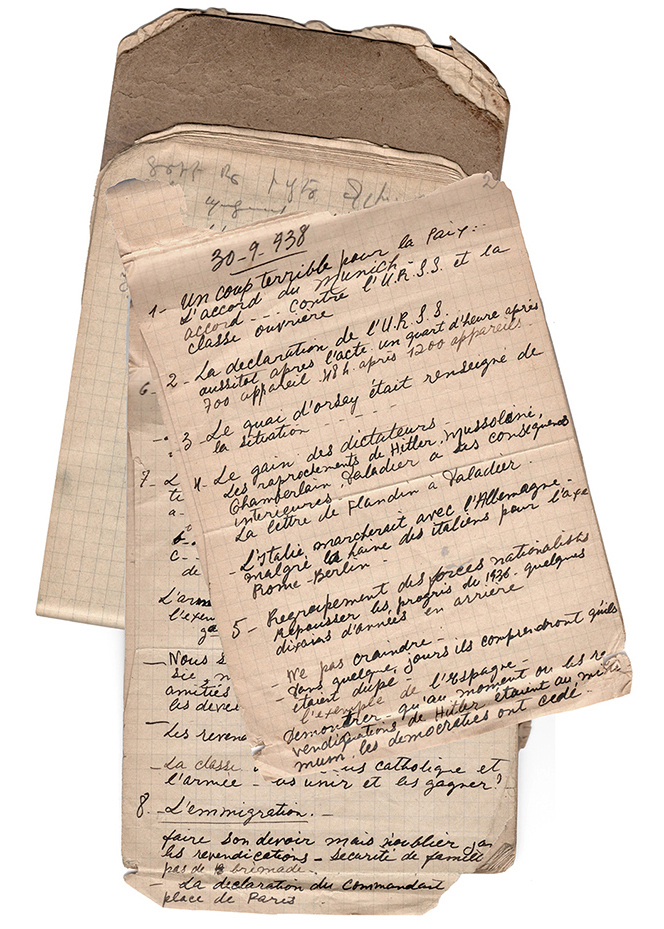 2
30-9-938
1- Un coup terrible pour la Paix :-
L'accord du Munich -
accord - - - contre l'U.R.S.S. et la
classe ouvrière
2- La declaration de l'U.R.S.S.
aussitot après l'acte un quart d'heure après
700 appareil. 48 h. après 1200 appareils.
3- Le quai d'orsay était renseigné de
la situation - - - - -
4- Le gain des dictateurs
Les raprochements de Hitler, Mussoleine,
Chamberlain, Daladier a ses consequences
interieures.
La lettre de Flandin a Daladier.
- L'Italie marcherait avec l'Allemagne -
malgré la haine des italiens pour l'axe
Rome-Berlin -
5- Regroupement des forces nationalistes
repousser les progrès de 1936 - quelques
dixaias d'années en arrière
- Ne pas craindre -
Dans quelque jours ils comprendront qu'ils
étaient dupé -
- l'exemple de l'Espagne -
demontrer qu'au moment ou les re
vendiquations de Hitler étaient au maxi
mum, les democraties ont cedé.
6-
7- L
te
a-
b-
c-
de
L'arm
l'exem
ga
- Nous s
sie,
amitiés
les devei
- Les revend
- La classe us catholique et
l'armée - us unir et les gagner?
8. L'emmigration. -
faire son devoir mais n'oublier pas
les revendications - securité de famill
pas de brimade.
- La declaration du commandant
place de Paris